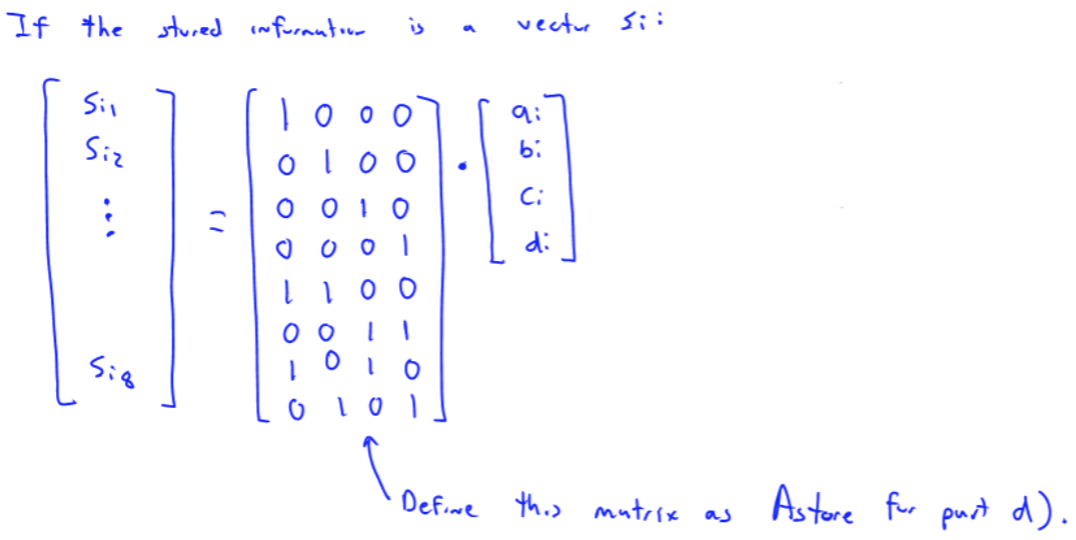 If the stored information is a vector si:
si1
si2
⋮
si8
=
1 0 0 0
0 1 0 0
0 0 1 0
0 0 0 1
1 1 0 0
0 0 1 1
1 0 1 0
0 1 0 1
·
ai
bi
ci
di
Define this matrix as Astore for part d).